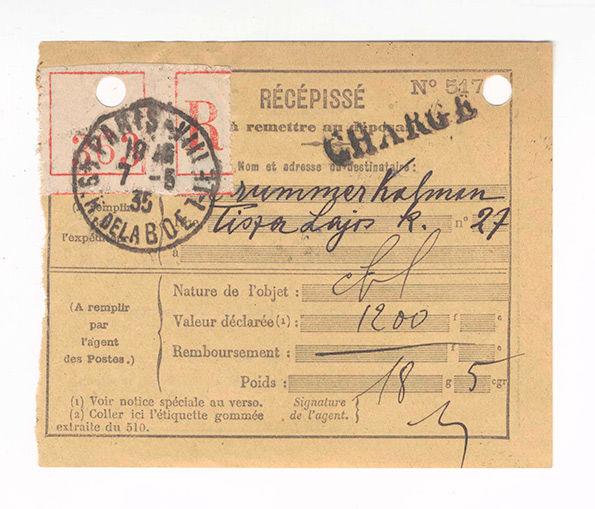 R
Nº 517
RÉCÉPISSÉ
à remettre au
CHARGÉ
PARIS
18
7 -5
35
R. DE LA BOÉTIE
Nom et adresse du destinataire :
rummer Kalman
Tisza Lajos k. nº 27
(A remplir
à
Nature de l'objet : chl
Valeur déclarée (1) : 1200 f c
Remboursement : f c
Poids : 18 g 5 cgr
(A remplir
par
l'agent
des Postes.)
(1) Voir notice spéciale au verso.
(2) Coller ici l'étiquette gommée
extraite du 510.
Signature
de l'agent.